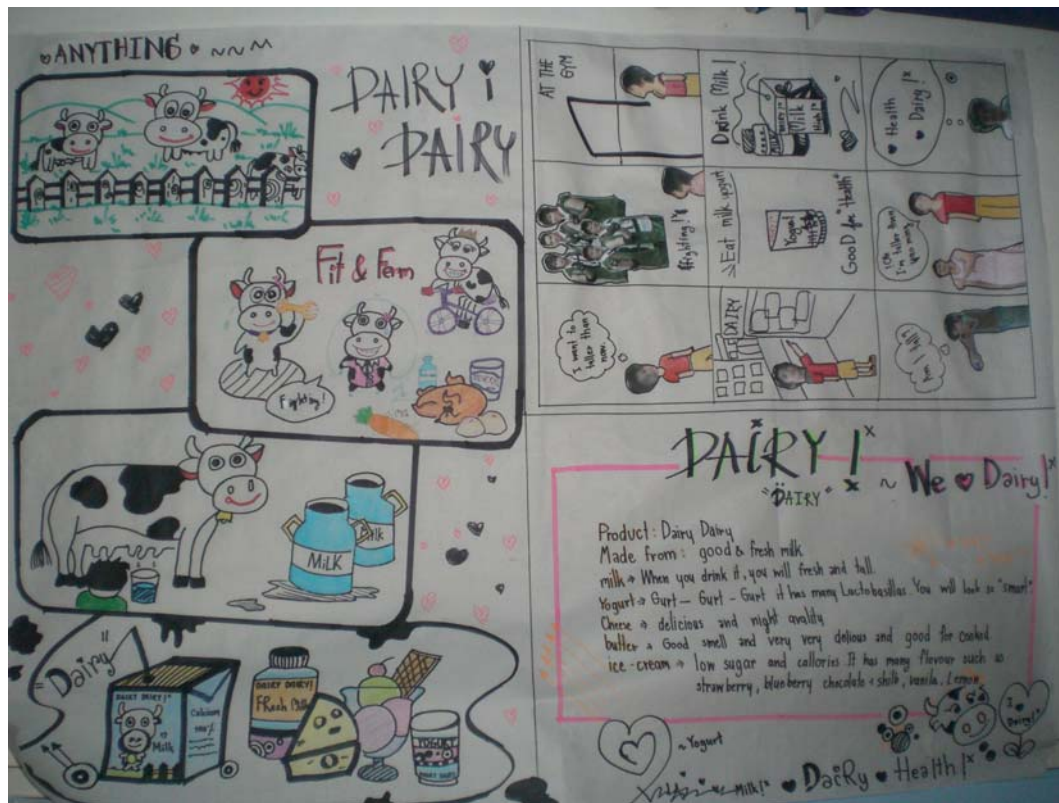 ANYTHING
DAIRY
DAIRY
Fit & Ferm
Fighting!
MILK
Milk
"Dairy"
DAIRY DAIRY!
Milk
Calcium
DAIRY DAIRY!
FResh Milk
YOGURT
DAIRY DAIRY
I want to
taller than
now.
DAIRY
Am I tall?
Fighting!
Eat milk yogurt
Yogurt
GOOD for "Health"
I'm taller than
you mommy
AT THE
GYM
Drink Milk!
Milk
Health
Dairy!
DAIRY!
"DAIRY"
~ We ♥ Dairy!
Product : Dairy Dairy
Made from : good & fresh milk
milk → When you drink it, you will fresh and tall.
Yogurt → Gurt - Gurt - Gurt it has many Lactobasillas. You will look so "smart"
Cheese → delicious and night avality
butter → Good smell and very very delious and good for cooked.
ice-cream → low sugar and callories It has many flavour such as
strawberry, blueberry chocolate + shilk, vanila, Lemon
I ♥
Dairy!
~Yogurt
Milk! ♥ DaiRy ♥ Health!